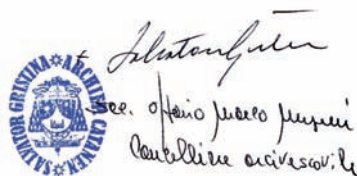 ✠ SALVATOR GRISTINA ✠ ARCHIEP. CATANEN.
+ Salvatore Gristina
Sac. Ottavio Marco Musumeci
Cancelliere arcivescovile